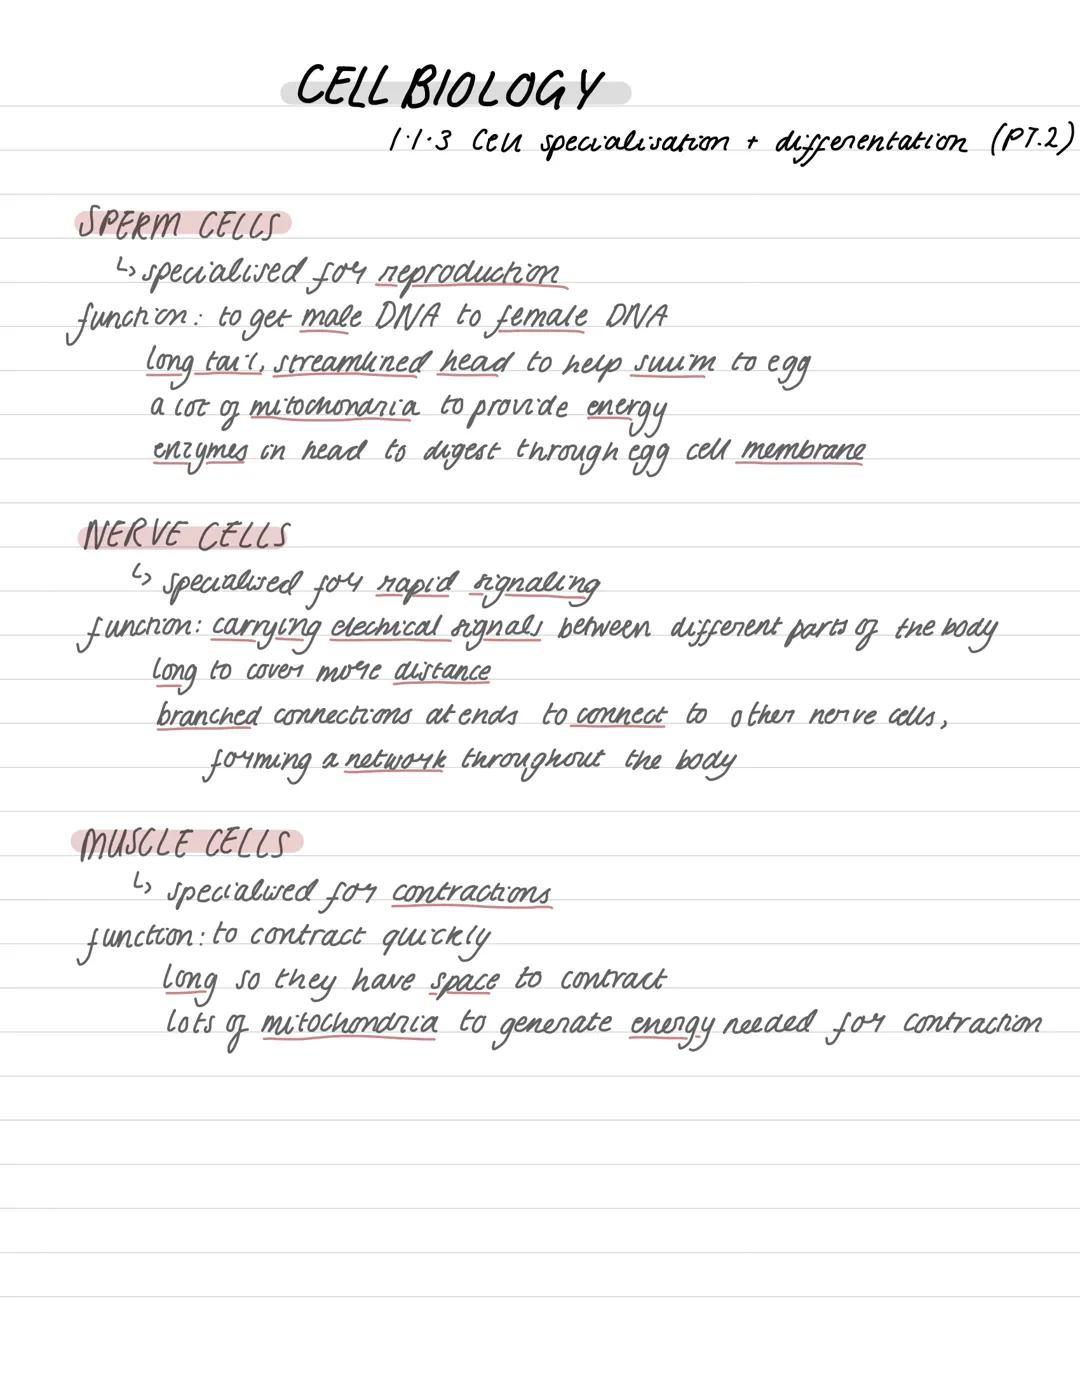 CELL BIOLOGY
1.1.3 Cell specialisation + differentation (PT.2)
SPERM CELLS
↳ specialised for reproduction
function: to get male DNA to female DNA
long tail, streamlined head to help swim to egg
a lot of mitochondria to provide energy
enzymes in head to digest through egg cell membrane
NERVE CELLS
↳ specialised for rapid signaling
function: carrying electrical signals between different parts of the body
long to cover more distance
branched connections at ends to connect to other nerve cells,
forming a network throughout the body
MUSCLE CELLS
↳ specialised for contractions
function: to contract quickly
long so they have space to contract
lots of mitochondria to generate energy needed for contraction